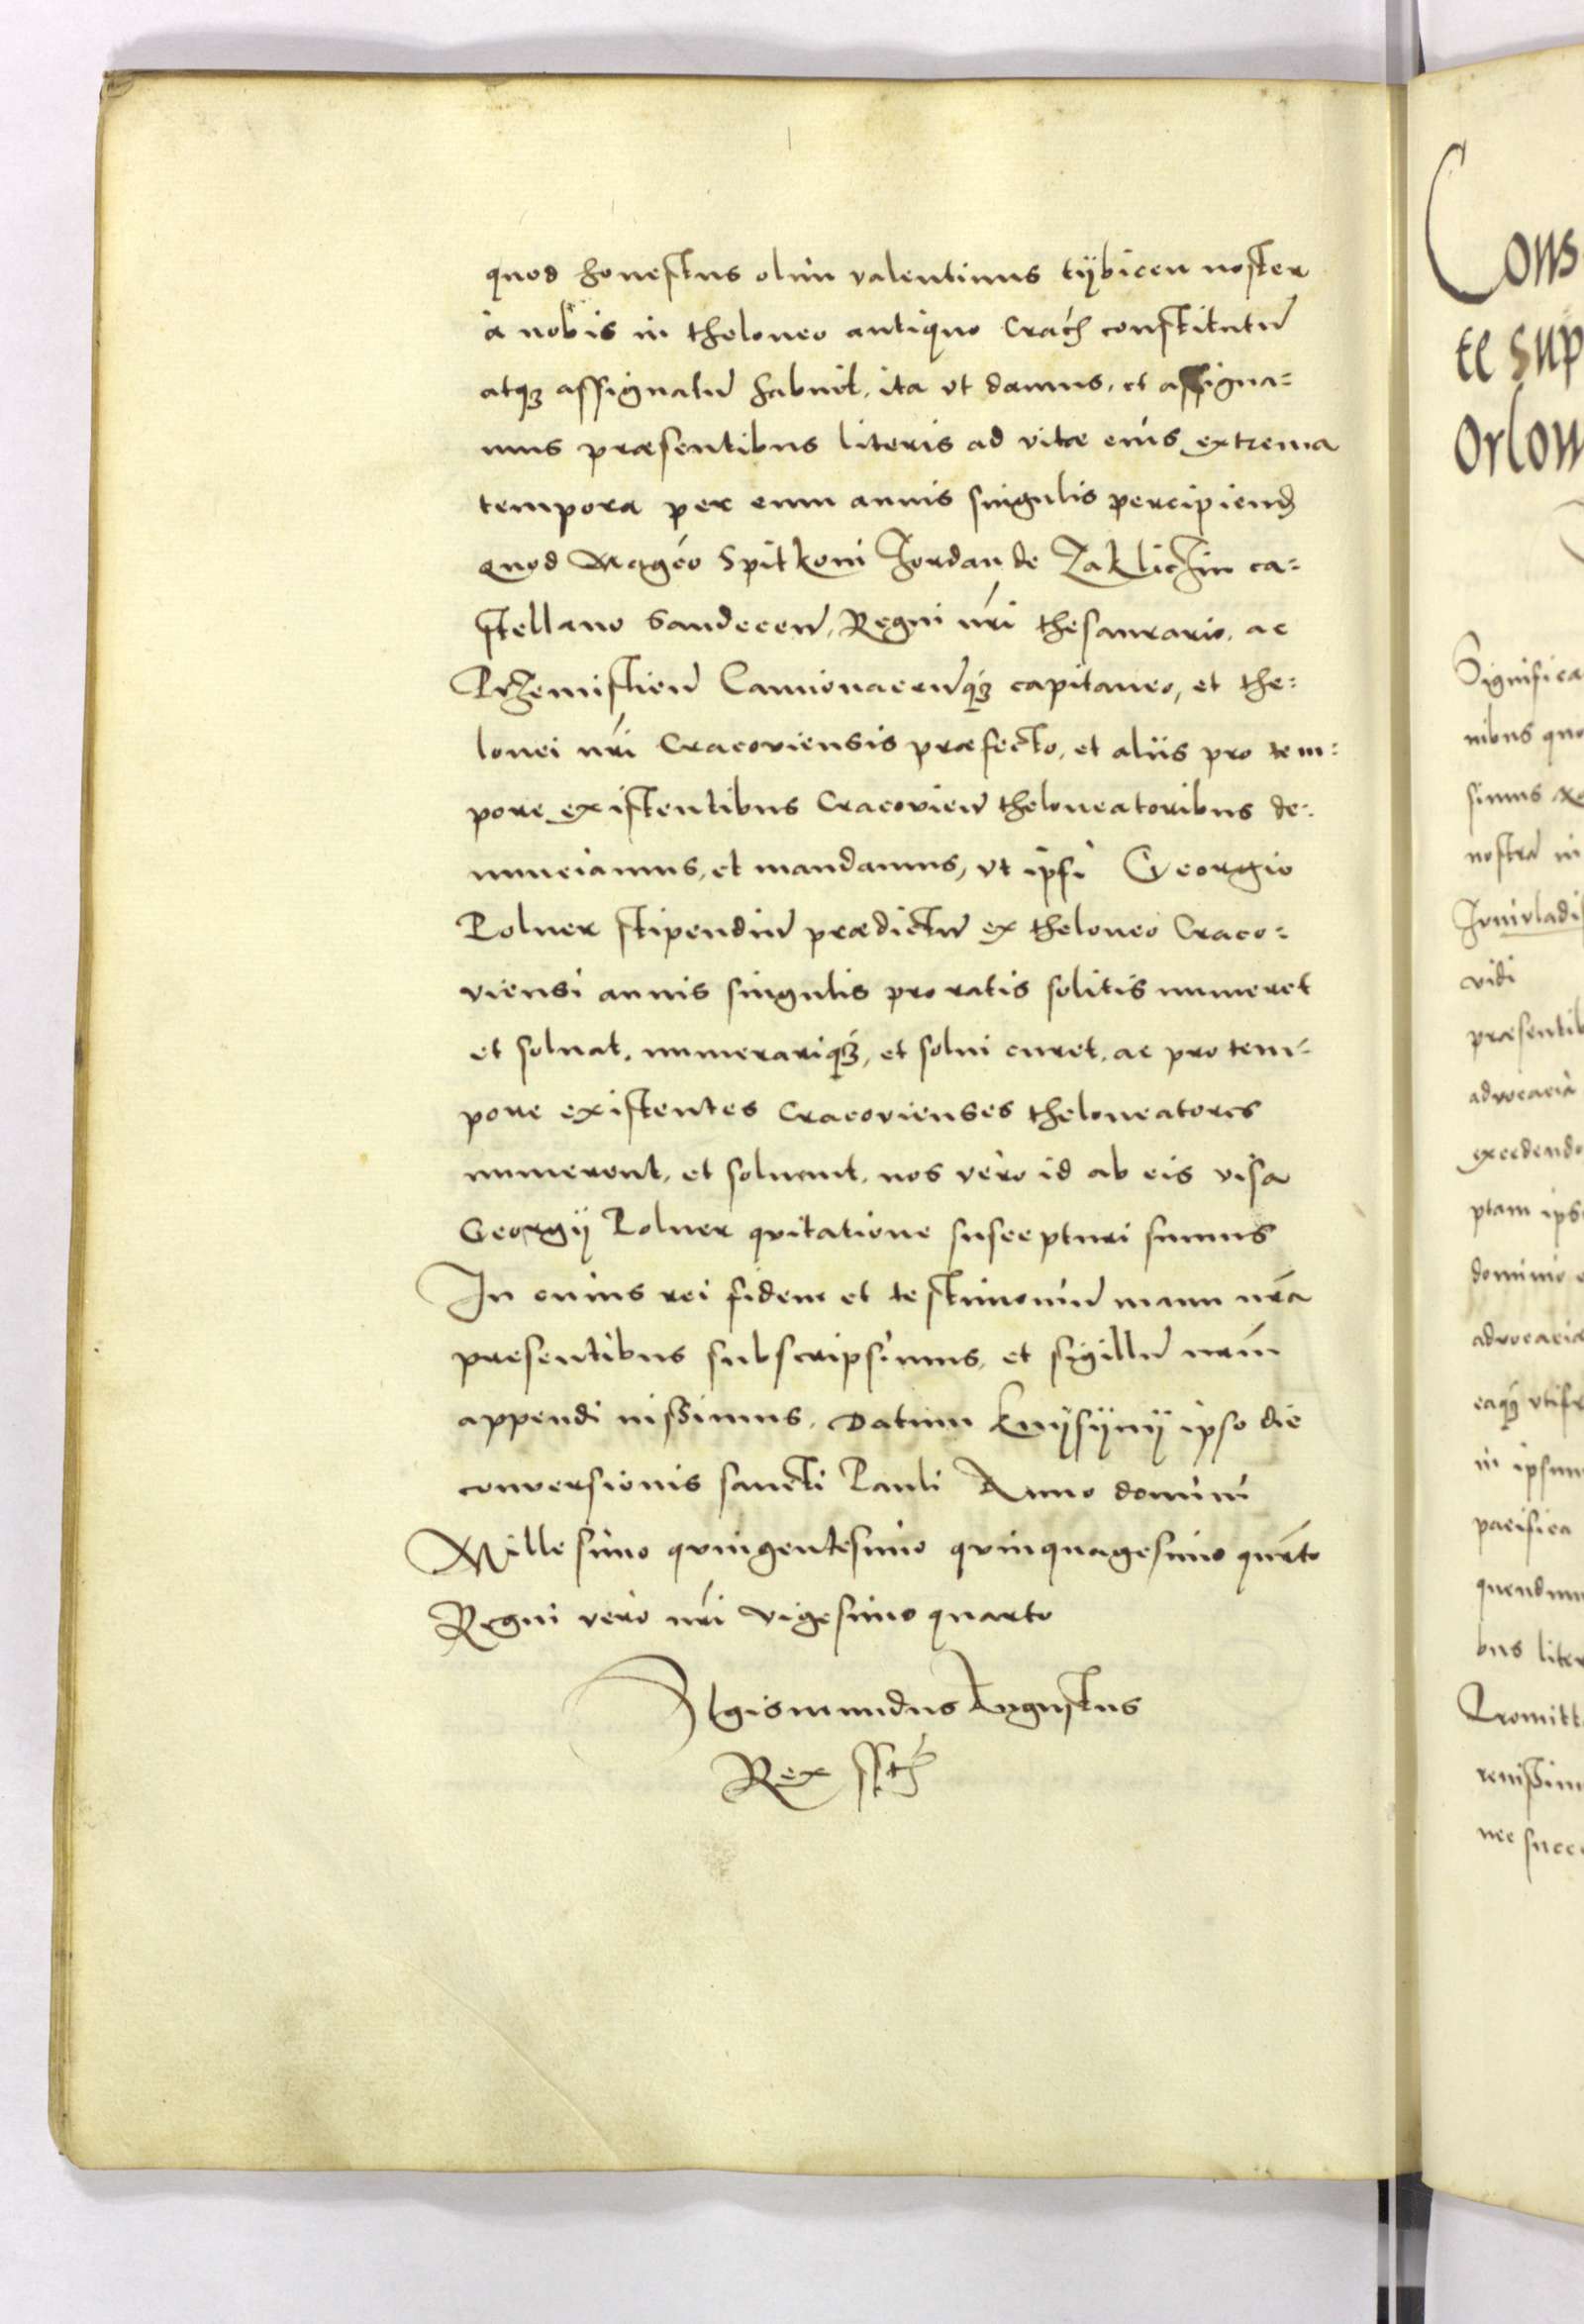 quod honestus olim valentinus tÿbicen noster
à nobis in theloneo antiquo Crach constitutū
atqꝫ assignatū habuit, ita vt damus, et assigna=
mus præsentibus literis ad vitæ eius extrema
tempora per eum annis singulis percipiend
quod Magco Spitkoni Jordan de Zaklichin ca=
stellano Sandecen̄, Regni nri thesaurario, ac
Przemislien̄ Camionacen̄qꝫ capitaneo, et the=
lonei nri Cracoviensis præfecto, et aliis pro tem=
pore existentibus Cracovien̄ theloneatoribus de=
nunciamus, et mandamus, vt ipsi Georgio
Polner stipendiū prædictū ex theloneo Craco=
viensi annis singulis pro ratis solitis numeret
et soluat, numerariqꝫ, et solui curet, ac pro tem=
pore existentes Cracovienses theloneatores
numerent, et soluant, nos vero id ab eis visa
Georgij Polner quitatione suscepturi sumus
In cuius rei fidem et testimoniū manu nrā
presentibus subscripsimus, et sigillū nrm
appendi iussimus. Datum Knÿsÿnÿ ipso die
conversionis sancti Pauli Anno domini
Millesimo quingentesimo quinquagesimo quarto
Regni vero nri vigesimo quarto
Sigismundus Augustus
Rex sst
Cons
te sup
Orlow
Significa
nibus quo
simus
nostra in
vidi
præsentib
advocacia
excedendo
ptam ips
dominio
advocacia
eaqꝫ vtifr
in ipsum
pacifica
quendum
bus liter
Promitt
renissim
nec succ